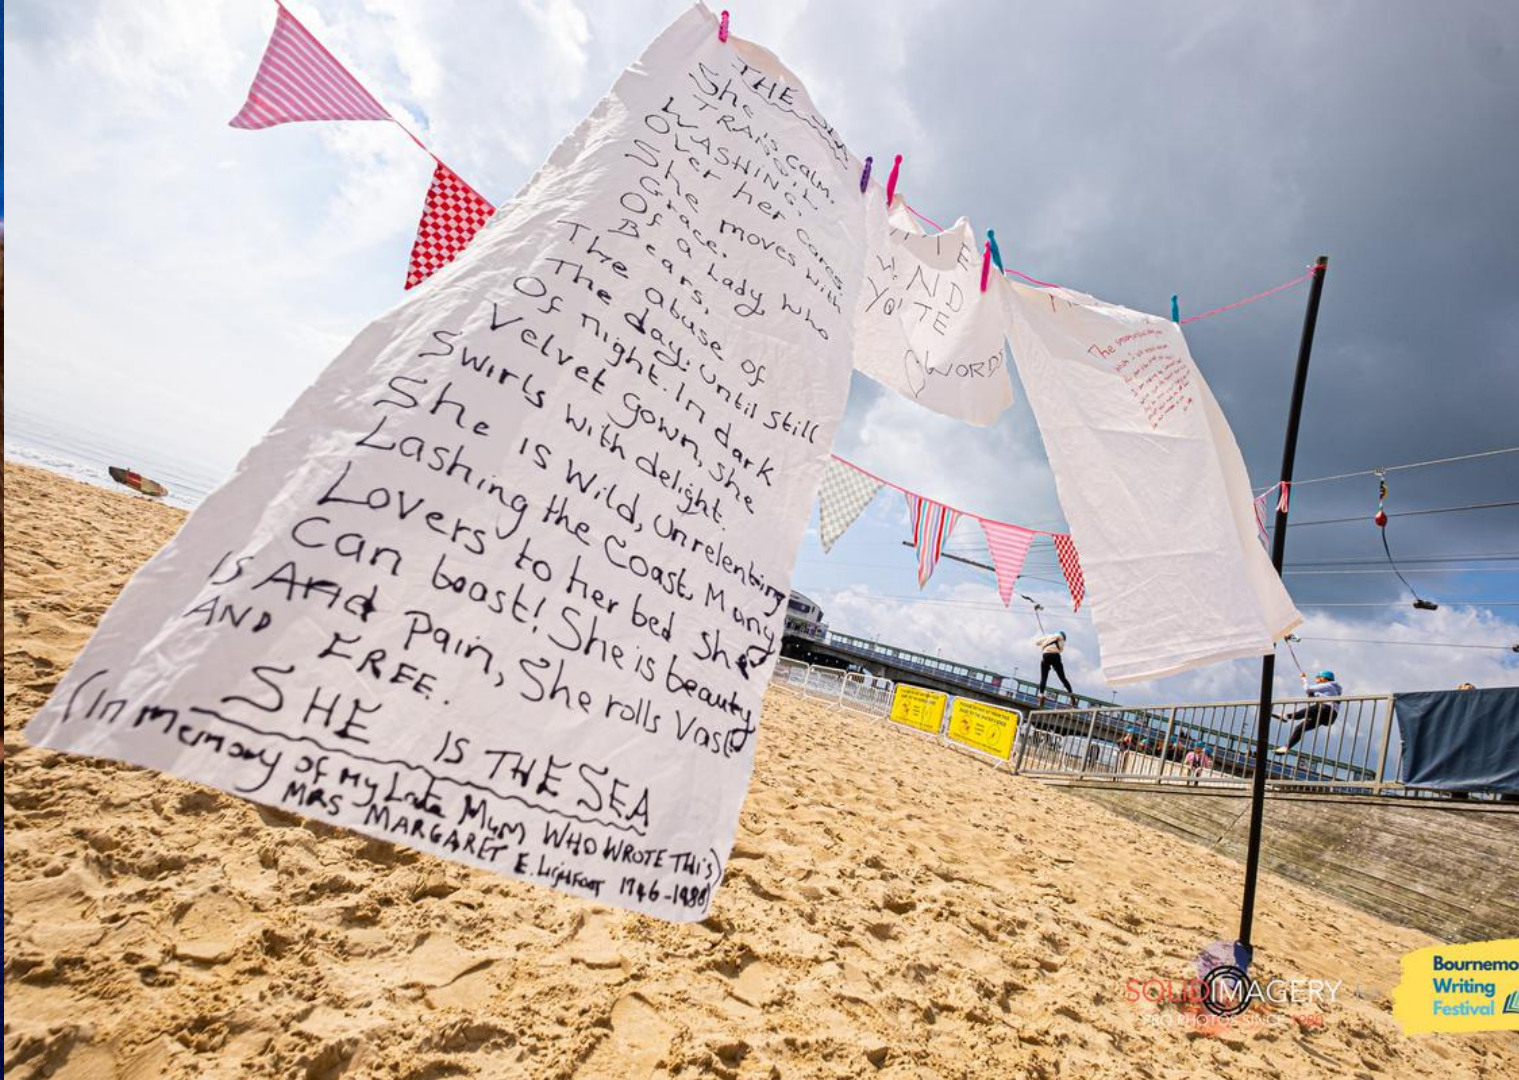 THE SEA
She is calm.
TRANQUIL
WASHING,
Over her cares
She moves with
Grace.
Of a Lady, who
Bears,
The abuse of
The day: until still
Of night. In dark
Velvet gown, she
Swirls with delight.
She is wild, unrelenting
Lashing the Coast. Many
Lovers to her bed she
Can boast! She is beauty
is And Pain, She rolls Vast
AND FREE.
SHE IS THE SEA
(In memory of my Late Mum WHO WROTE THIS)
MRS MARGARET E. LIGHFOOT 1946-1988)
WIND
TE
WORDS
The
SOLIDIMAGERY
PRO PHOTOS SINCE
Bournemo
Writing
Festival